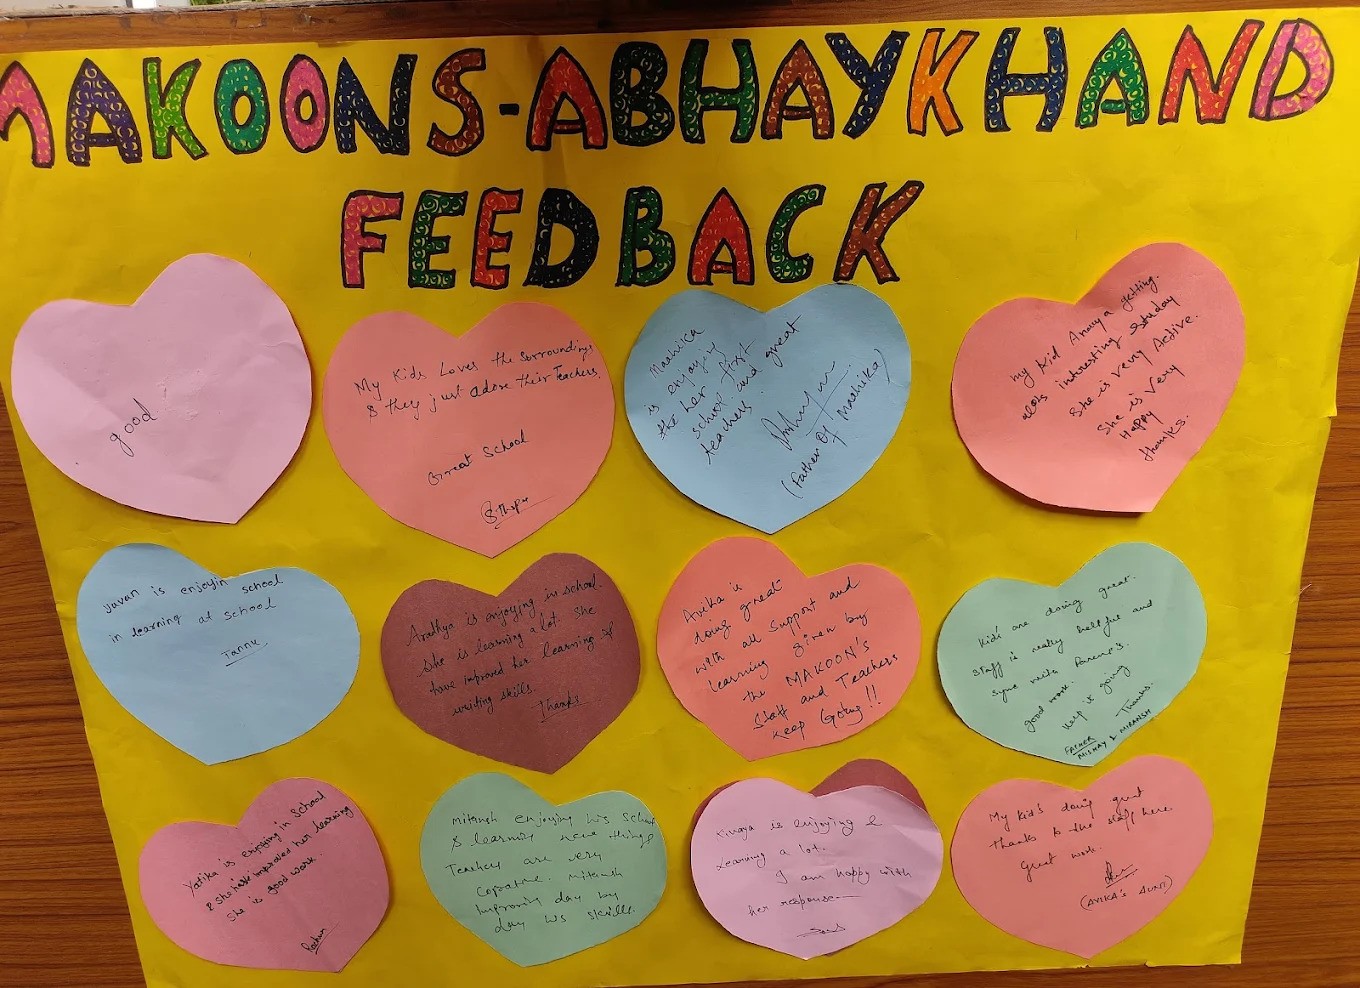 MAKOONS-ABHAYKHAND
FEEDBACK
good
My Kids Loves the sorroundings
& they just adore their Teachers.
Great School
Maahika
is enjoying
the her first
school and great
teachers
(Father Of Maahika)
My kid Anaya getting
alots interesting estuday
She is very Active.
She is very
Happy
thanks.
Juvan is enjoyin school
in learning at school
Tannu
Aradhya is enjoying in school.
She is learning a lot. She
have improved her learning &
writing skills.
Thanks
Avika is
doing great
with all support and
learning given by
the MAKOON'S
Staff and Teachers
Keep Going!!
Kid's are doing great.
Staff is really helpful and
sync with Parents.
good work.
Keep it going
Thanks.
FATHER
MISHAY & MIRANSH
Yatika is enjoying in School
& she has improved her learning
She is good work.
Mitansh enjoying his school
& learning new things
Teachers are very
Mitansh
improving day by
day his skills.
is enjoying &
Learning a lot.
I am happy with
her response
My kid's doing great
thanks to the staff here.
Great work.
(AVIKA'S AUNT)